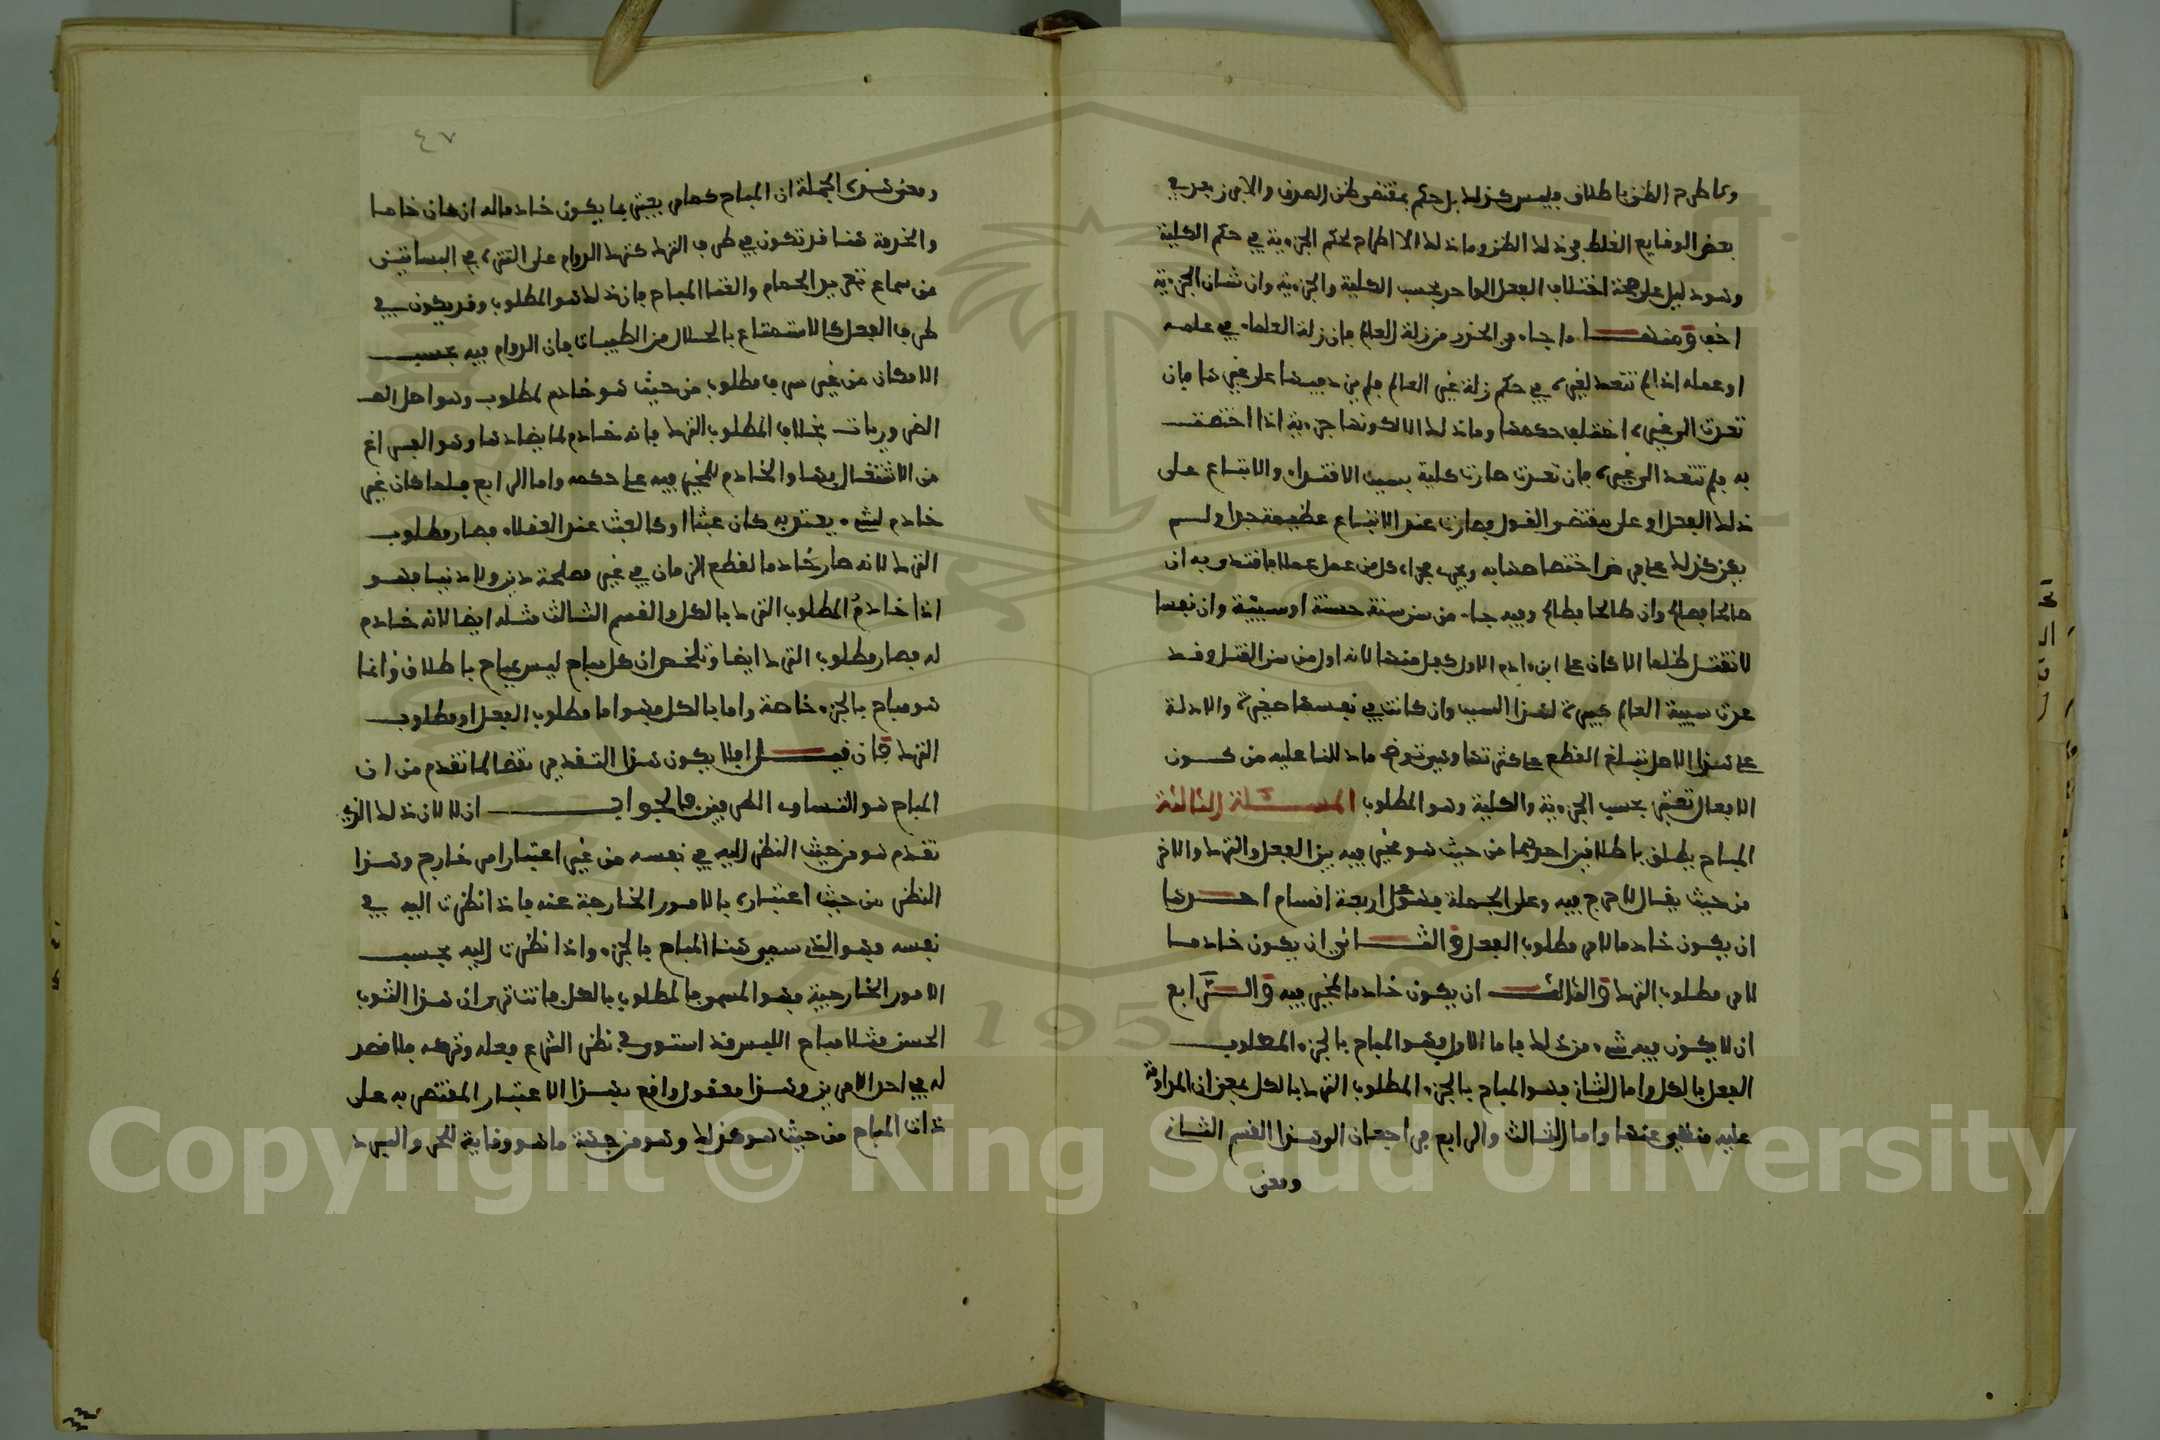 ولما طرح الظن باطلاق وليس كذلك بل حكم بمقتضى ظن الصدق وان برز بعد في
بعض الوقايع الغلط في ذلك الظن وما ذلك الا اطراح لحكم الجزءية في حكم الكلية
وهو دليل على صحة اختلاف الفعل الواحد بحسب الكلية والجزءية وان شان الجزءية
اخف ومنها ما جاء في الحذر من زلة العالم فان زلة العالم في علمه
او عمله اذا لم تتعد لغيره في حكم زلة غير العالم فلم يزد فيها على غيرها فان
تعدت الى غيره اختلف حكمها وما ذلك الا لكونها جزءية اذا اختصت
به ولم تتعد الى غيره فان تعدت صارت كلية بسبب الاقتداء والاتباع على
ذلك الفعل او على مقتضى القول فصارت عند الاتباع عظيمة جدا ولم
يكن كذلك على فرض اختصاصها به ويجري مجراه كل من عمل عملا فاقتدي به ان
صالحا فصالح وان طالحا فطالح وفيه جاء من سن سنة حسنة او سيئة وان نفسا
لا تقتل ظلما الا كان على ابن ءادم الاول كفل منها لانه اول من سن القتل وقد
عدت سيئة العالم كبيرة لهذا السبب وان كانت في نفسها صغيرة والادلة
على هذا الاصل تبلغ القطع على كثرتها وهي توضح ما دللنا عليه من كون
الافعال تعتبر بحسب الجزءية والكلية وهو المطلوب المسئلة الثالثة
المباح يطلق باطلاقين احدهما من حيث هو مخير فيه بين الفعل والترك والاخر
من حيث يقال لا حرج فيه وعلى الجملة فهو على اربعة اقسام احدها
ان يكون خادما لامر مطلوب الفعل والثاني ان يكون خادما
لامر مطلوب الترك والثالث ان يكون خادما لمخير فيه والرابع
ان لا يكون فيه شيء من ذلك فاما الاول فهو المباح بالجزء المطلوب
الفعل بالكل واما الثاني فهو المباح بالجزء المطلوب الترك بالكل بمعنى ان المداومة
عليه منهي عنها واما الثالث والرابع فراجعان الى هذا القسم الثاني
ومعنى
٤٧
ومعنى هذه الجملة ان المباح كما مر يعتبر بما يكون خادما له ان كان خادما
والخدمة هنا قد تكون في طرف الترك كترك الدوام على التنزه في البساتين
من سماع تغريد الحمام والغنا المباح فان ذلك هو المطلوب وقد يكون في
طرف الفعل كالاستمتاع بالحلال من الطيبات فان الدوام فيه بحسب
الامكان من غير سرف مطلوب من حيث هو خادم لمطلوب وهو اصل
الضروريات بخلاف المطلوب الترك فانه خادم لما يضادها وهو الفراغ
من الاشتغال بها والخادم للمخير فيه على حكمه واما الرابع فلما كان غير
خادم لشيء يعتد به كان عبثا او كالعبث عند العقلاء فصار مطلوب
الترك لانه صار خادما لقطع الزمان في غير مصلحة دين ولا دنيا فهو
اذا خادم المطلوب الترك بالكل والقسم الثالث مثله ايضا لانه خادم
له فصار مطلوب الترك ايضا وتلخص ان كل مباح ليس بمباح باطلاق وانما
هو مباح بالجزء خاصة واما بالكل فهو اما مطلوب الفعل او مطلوب
الترك فان قيل افلا يكون هذا التقدير نقضا لما تقدم من ان
المباح هو المتساوي الطرفين فالجواب ان لا لان ذلك الذي
تقدم هو من حيث النظر اليه في نفسه من غير اعتبار امر خارج وهذا
النظر من حيث اعتباره بالامور الخارجة عنه فاذا نظرت اليه في
نفسه فهو الذي سمي هنا المباح بالجزء واذا نظرت اليه بحسب
الامور الخارجية فهو المسمى بالمطلوب بالكل فانت ترى ان هذا الثوب
الحسن مثلا مباح اللبس قد استوى في نظر الشرع فعله وتركه فلا قصد
له في احد الامرين وهذا معقول واقع بهذا الاعتبار المقتصر به على
ذات المباح من حيث هو كذلك وهو من جهة ما هو وقاية للحر والبرد